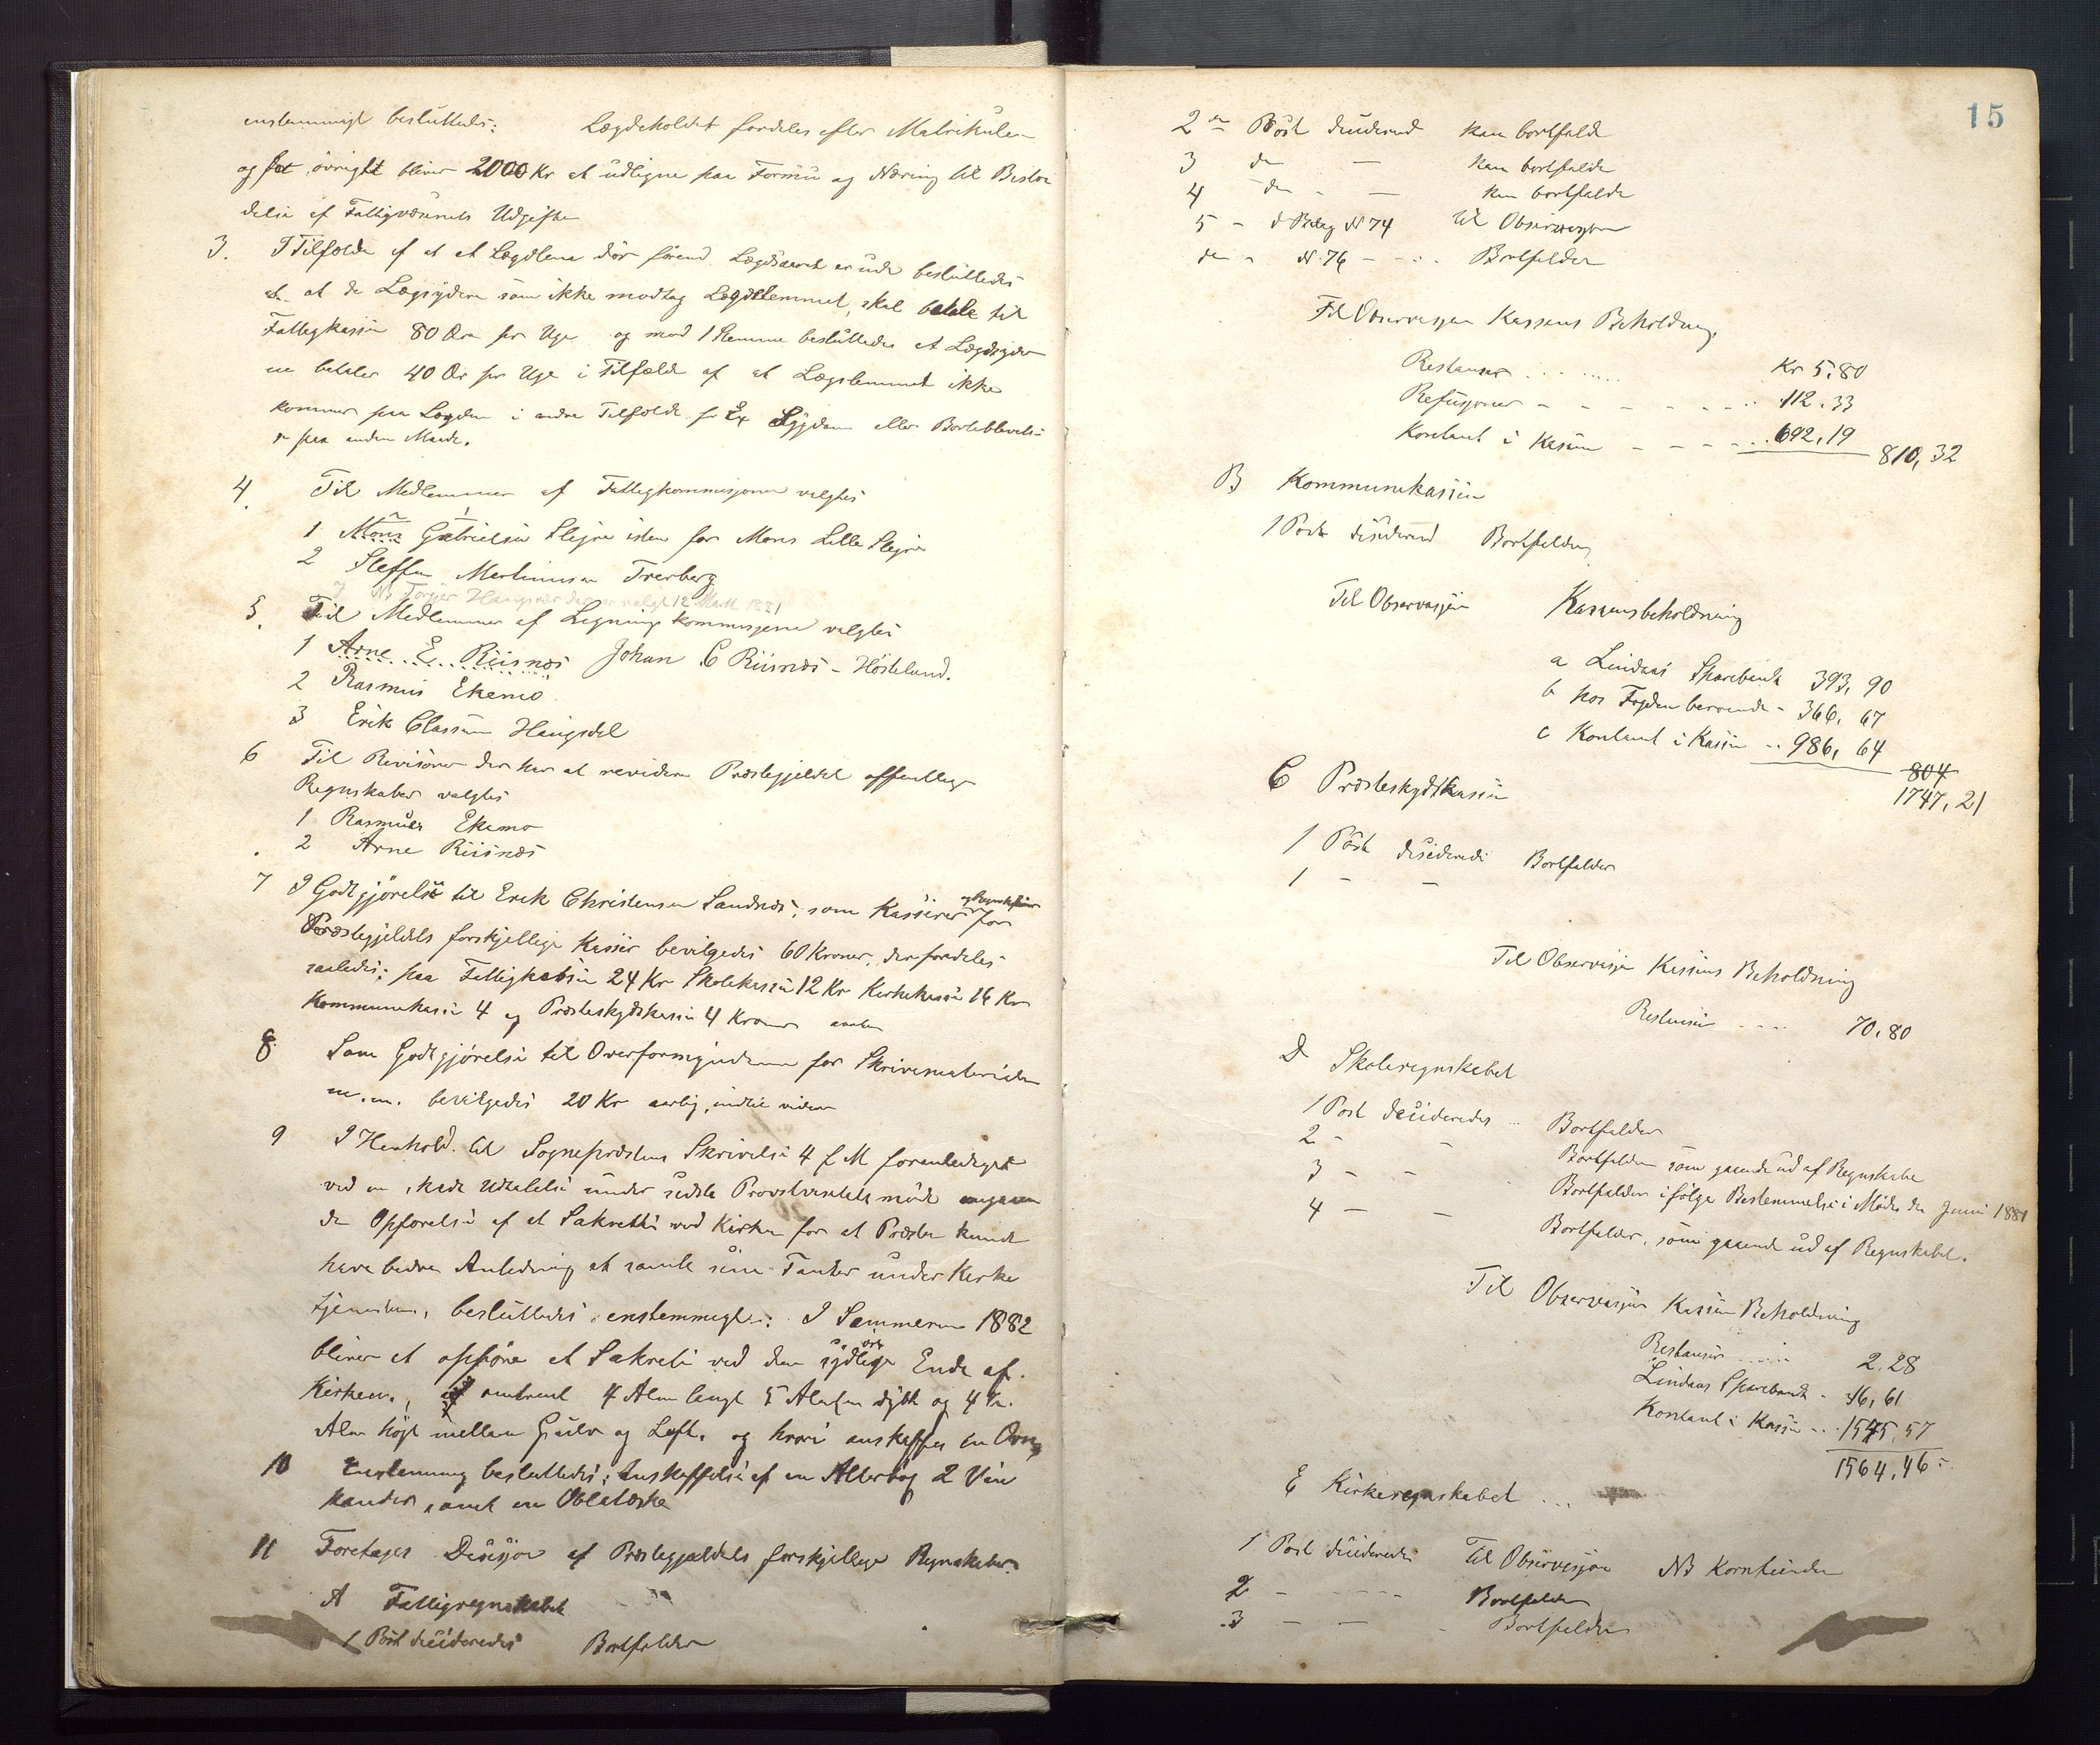 enstemmigt besluttedes: Lægdeholdet fordeles efter Matrikulen
og for øvrigt bliver 2000 Kr at udligne paa Formue og Næring til Bestri
delse af Fattigvæsenets Udgifter
3. I Tilfælde af at et Lægdlem dør førend Lægdsaaret er ude besluttedes
at de Lægdydere som ikke modtag Lægdslemmet, skal betale til
Fattigkassen 80 Øre per Uge og mod 1 Stemme besluttedes at Lægdsyder
ne betaler 40 Ør per Uge i Tilfælde af at Lægslemmet ikke
kommer paa Lægden i andre Tilfælde f Ex Sygdom eller Bortebliven
paa anden Maade.
4. Til Medlemmer af Fattigkommisjonen valgtes
1 Mons Gabrielsen Sleire isteden for Mons Lille Sleire
2 Steffen Martinusen Trerberg
3 Torger Haugsvær der er valgt 12 Marts 1881
5. Til Medlemmer af Ligningskommisjonen valgtes
1 Arne E. Riisnæs Johan C Riisnæs - Hosteland.
2 Rasmus Ekemo
3 Erik Classen Haugsdal
6 Til Revisorer der har at revidere Præstegjeldet offentlige
Regnskaber valgtes
1 Rasmus Ekemo
2 Arne Riisnæs
7 I Godtgjørelse til Erik Christensen Sandnæs, som Kasserer og Regnskabsfører for
Præstegjeldets forskjellige Kasser bevilgedes 60 Kroner, der fordeles
saaledes: paa Fattigkassen 24 Kr Skolekassen 12 Kr Kirkekassen 16 Kr
Kommunekassen 4 og Præsteskydskassen 4 Kroner
8. Som Godtgjørelse til Overformynderen for Skrivematerialer
m.m. bevilgedes 20 Kr aarlig, indtil videre
9 I Henhold til Sogneprestens Skrivelse 4 f M foranlediget
ved en skede Udtalelse under sidste Provstevisitats møde angaaen
de Opførelse af et Sakresti ved Kirken for at Præsten kunde
have bedre Anledning at samle sine Tanker under Kirke
tjenesten, besluttedes enstemmigt: I Sommeren 1882
bliver at opføre et Sakresti ved den sydlige Ende af
Kirken, omtrent 4 Alen langt 5 Alen dybt og 4 ½
Alen høgt mellem Gulv og Loft, og hvori anskaffes en Ovn
10 Enstemmig besluttedes: Anskaffelse af en Alterbog 2 Vin
kander, samt en Oblatæske
11 Foretages Decisjon af Præstegjældets forskjellige Regnskaber.
A Fattigregnskabet
1 Post deciderede Bortfalder
15
2den Post deciderend kan bortfalde
3 de — kan bortfalde
4 de - — kan bortfalde
5 - d Bilag N 74 til Observasjon
de - N. 76 - - Bortfalder
Til Observasjon Kassens Beholdning.
Restanser Kr 5,80
Refusjoner - 112.33
Kontant i Kassen - 692,19
810,32
B Kommunekassen
1 Post desiderend Bortfalder
Til Observasjon Kassensbeholdning
a Lindaas Sparebank 393,90
b hos Fogden beroende - 366,67
c Kontant i Kassen .. 986,64
804
1747,21
C Præsteskydskassen
1 Post desiderede Bortfalder
1 - -
Til Observasjon Kassens Beholdning
Restanser 70,80
D Skoleregnskabet
1 Post desideredes .. Bortfalder
2 - - Bortfalder som gaaende ud af Regnskabe
3 - - Bortfalder ifølge Bestemmelse i Møde den Juni 1881
4 - - Bortfalder, som gaaende ud af Regnskabet.
Til Observasjon Kassen Beholdning
Restanser 2,28
Lindaas Sparebank - 16,61
Kontant i Kassen .. 1545,57
1564,46
E Kirkeregnskabet ...
1 Post desiderede Til Observasjon NB Korntienden
2 - Bortfalder
3 - - Bortfalder